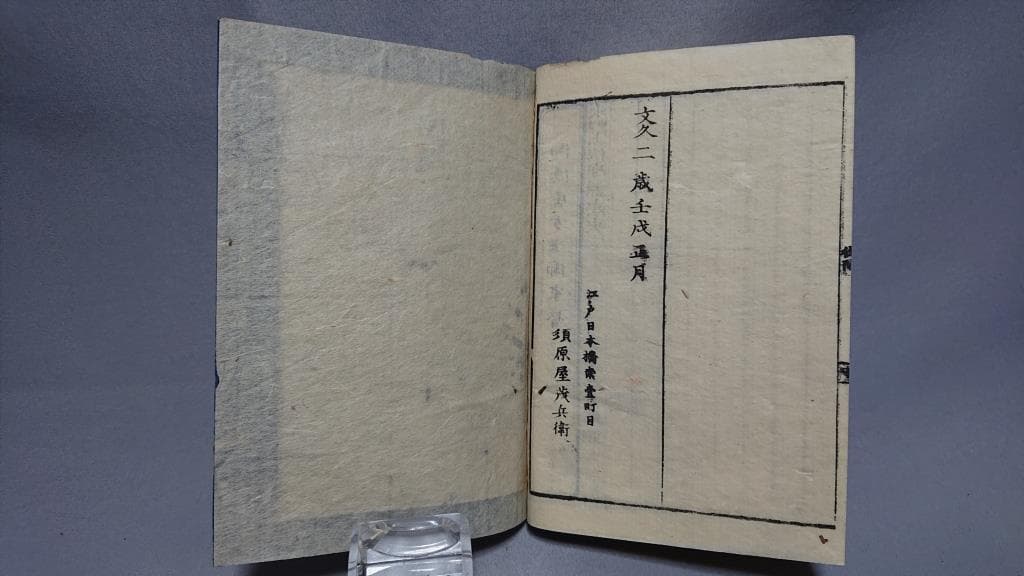 文久二歳壬戌正月
江戸日本橋南壹町目
須原屋茂兵衛